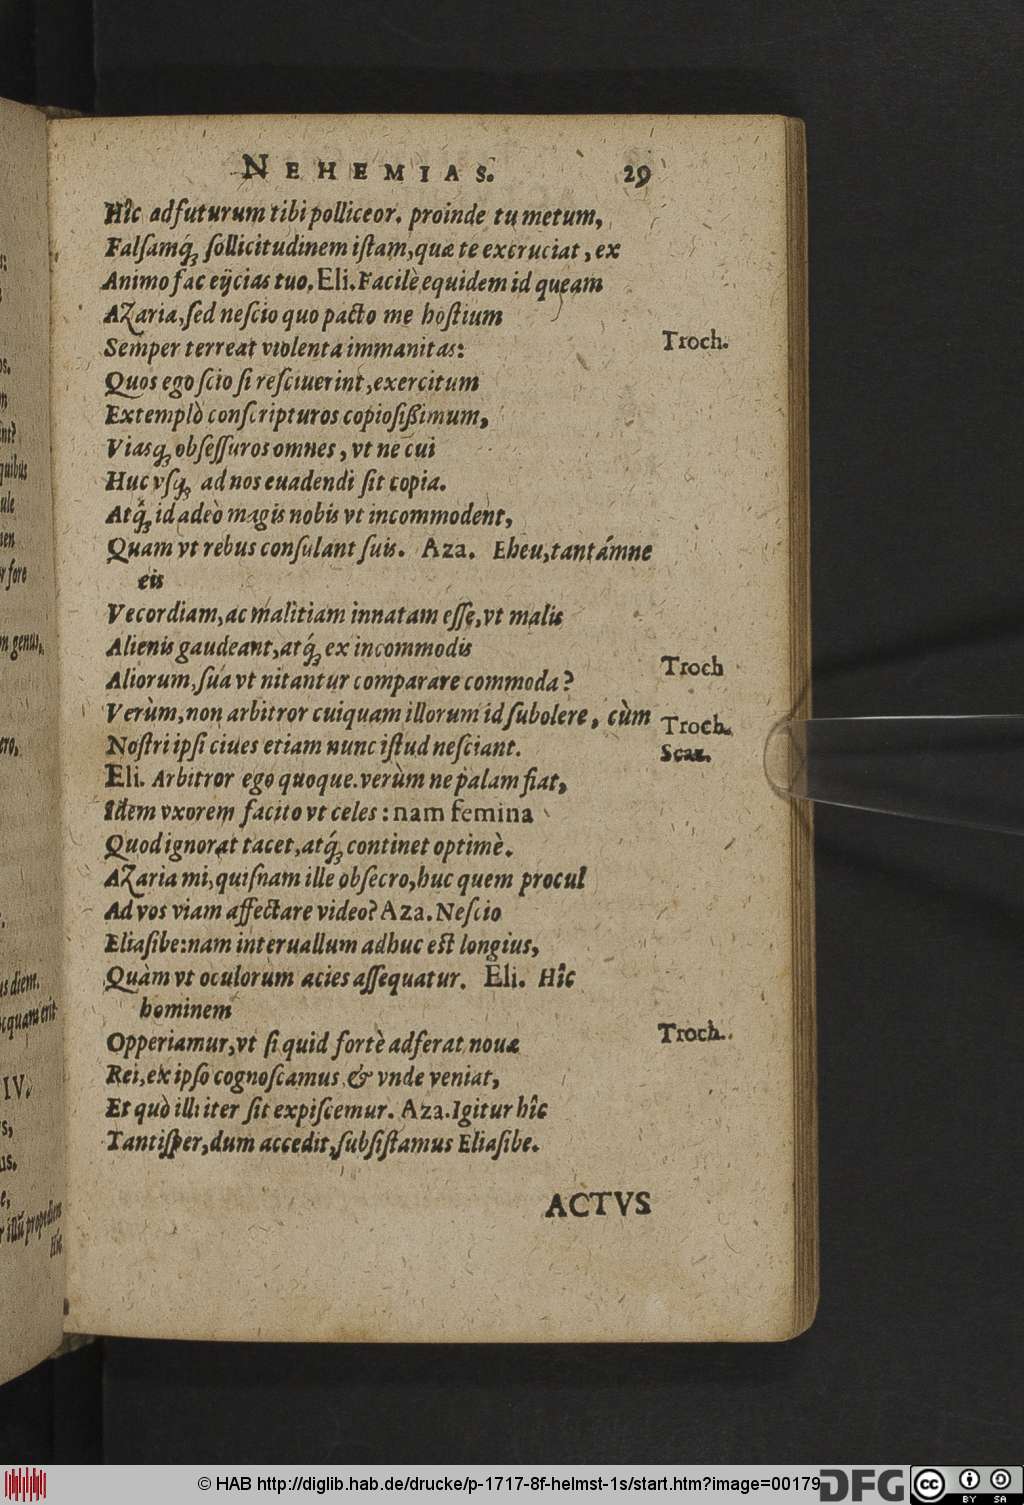 NEHEMIAS. 29
Hîc adfuturum tibi polliceor. proinde tu metum,
Falſamq́; ſollicitudinem iſtam, quæ te excruciat, ex
Animo fac eijcias tuo. Eli. Facilè equidem id queam
AZaria, ſed neſcio quo pacto me hoſtium
Semper terreat violenta immanitas: Troch.
Quos ego ſcio ſi reſciuerint, exercitum
Extemplò conſcripturos copioſißimum,
Viasq; obſeſſuros omnes, vt ne cui
Huc vſq; ad nos euadendi ſit copia.
Atq́; id adeò magis nobis vt incommodent,
Quam vt rebus conſulant ſuis. Aza. Eheu, tantámne
eis
Vecordiam, ac malitiam innatam eſſe, vt malis
Alienis gaudeant, atq́; ex incommodis
Aliorum, ſúa vt nitantur comparare commoda? Troch
Verùm, non arbitror cuiquam illorum id ſubolere, cùm Troch.
Noſtri ipſi ciues etiam nunc iſtud neſciant. Scaz.
Eli. Arbitror ego quoque. verùm ne palam fiat,
Idem vxorem facito vt celes: nam femina
Quod ignorat tacet, atq́; continet optimè.
AZaria mi, quiſnam ille obſecro, huc quem procul
Ad vos viam affectare video? Aza. Neſcio
Eliaſibe: nam interuallum adhuc eſt longius,
Quàm vt oculorum acies aſſequatur. Eli. Hîc
hominem
Opperiamur, vt ſi quid fortè adferat nouæ Troch.
Rei, ex ipſo cognoſcamus & vnde veniat,
Et quò illi iter ſit expiſcemur. Aza. Igitur hîc
Tantiſper, dum accedit, ſubſiſtamus Eliaſibe.
ACTVS
quibus
m genus,
us diem.
IV.
© HAB http://diglib.hab.de/drucke/p-1717-8f-helmst-1s/start.htm?image=00179
DFG
cc BY SA